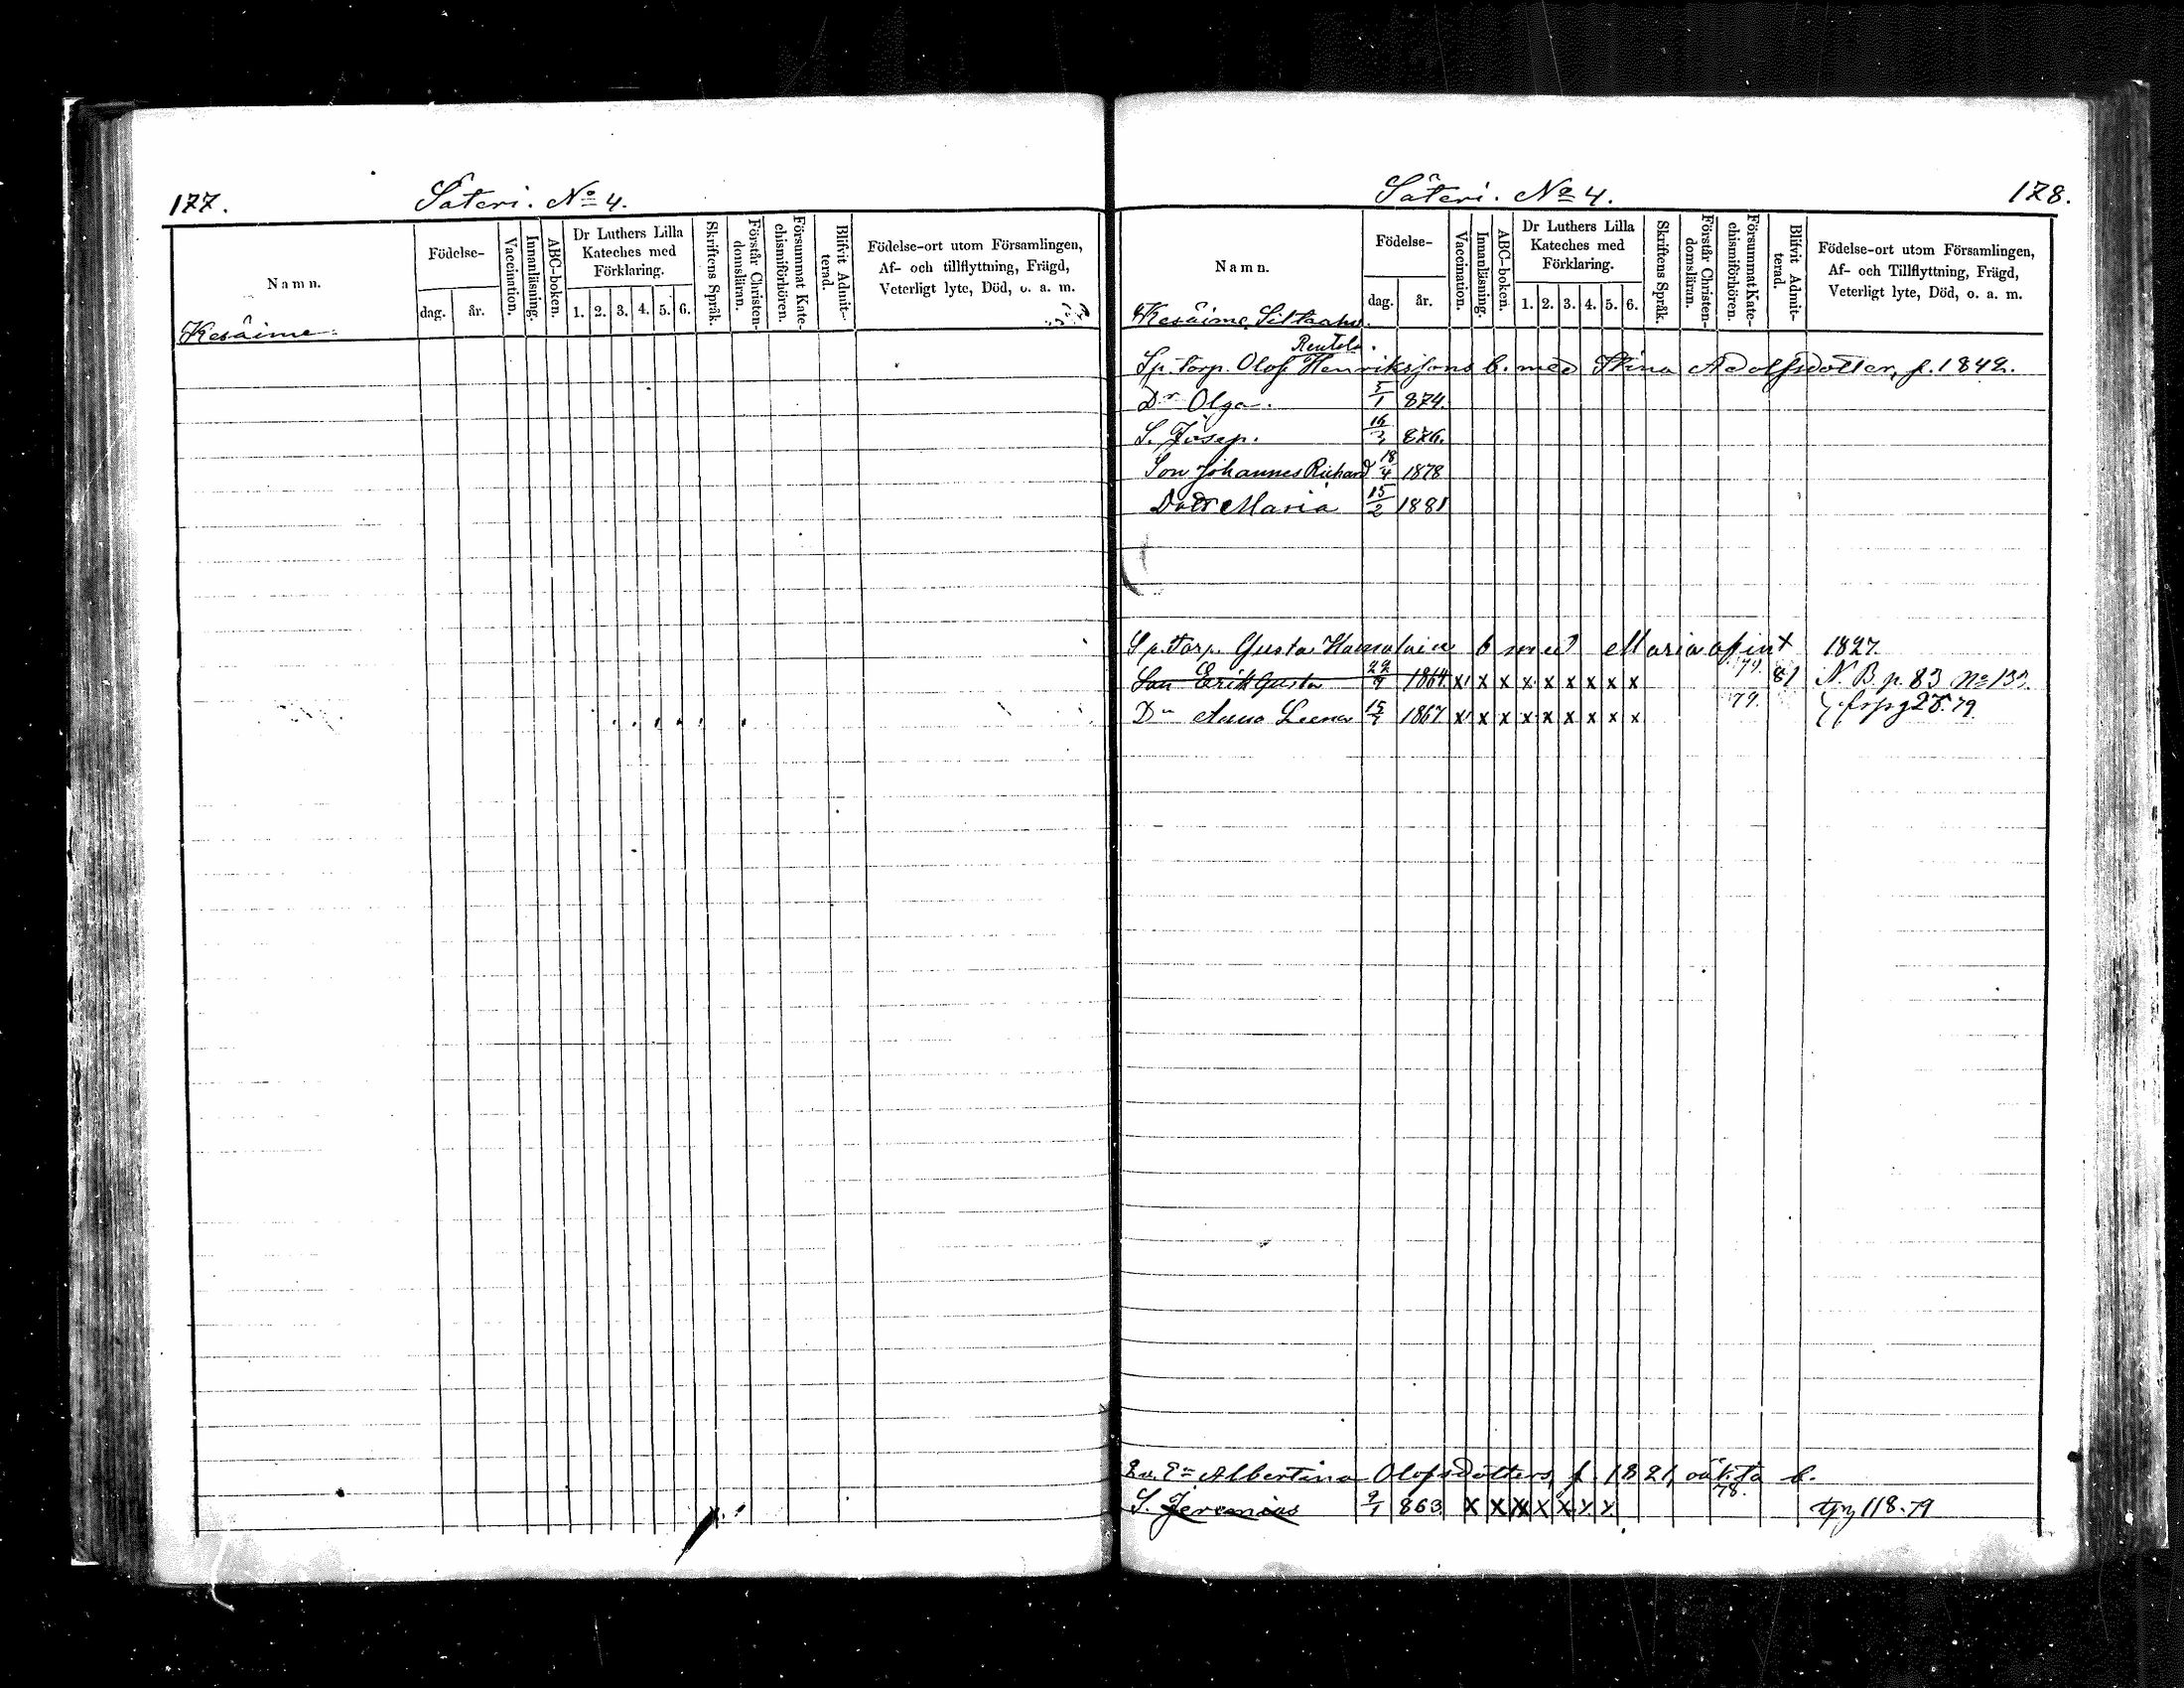 177.
Säteri. No 4.
Namn.
Födelse-
dag.
år.
Vaccination.
Innanläsning.
ABC-boken.
Dr Luthers Lilla
Kateches med
Förklaring.
1. 2. 3. 4. 5. 6.
Skriftens Språk.
Förstår Christen-
domsläran.
Försummat Kate-
chismiförhören.
Blifvit Admit-
terad.
Födelse-ort utom Församlingen,
Af- och tillflyttning, Frägd,
Veterligt lyte, Död, o. a. m.
Kesäime
Säteri. No 4.
178.
Namn.
Födelse-
dag.
år.
Vaccination.
Innanläsning.
ABC-boken.
Dr Luthers Lilla
Kateches med
Förklaring.
1. 2. 3. 4. 5. 6.
Skriftens Språk.
Förstår Christen-
domsläran.
Försummat Kate-
chismiförhören.
Blifvit Admit-
terad.
Födelse-ort utom Församlingen,
Af- och Tillflyttning, Frägd,
Veterligt lyte, Död, o. a. m.
Kesäime
Sp. Torp. Olof Henrikssons b. med Stina Adolfsdotter, f. 1842.
Dr Olga. 5/1 874.
S. Josep. 16/3 876.
Son Johannes Richard 18/4 1878
Dotr Maria 15/2 1881
Sp. Torp. Gusta b med Maria 1827.
Son Erik Gusta 1864 x x x x x x x x x 79. 81 N. B. p. 83 No 133.
Dr Anna Leena 15/7 1867 x x x x x x x x x 79. 79
Albertina Olofsdotters, f. 1821, oäkta b.
S. Jeremias 9/1 863. x x x x x x x 78. 118. 79